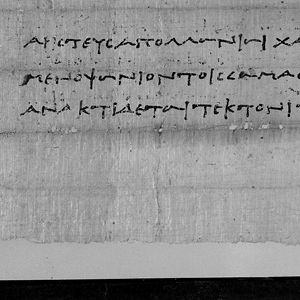 ΑΡΙϹΤΕΥϹΑΠΟΛΛΩΝΙΩΙ ΧΑ
ΜΕΝΟΨΩΝΙΟΝΤΟΙϹϹΑΜΑ
ΑΝΑ ΚΕΤΙΔΕΤΩΙΤΕΚΤΟΝΙ